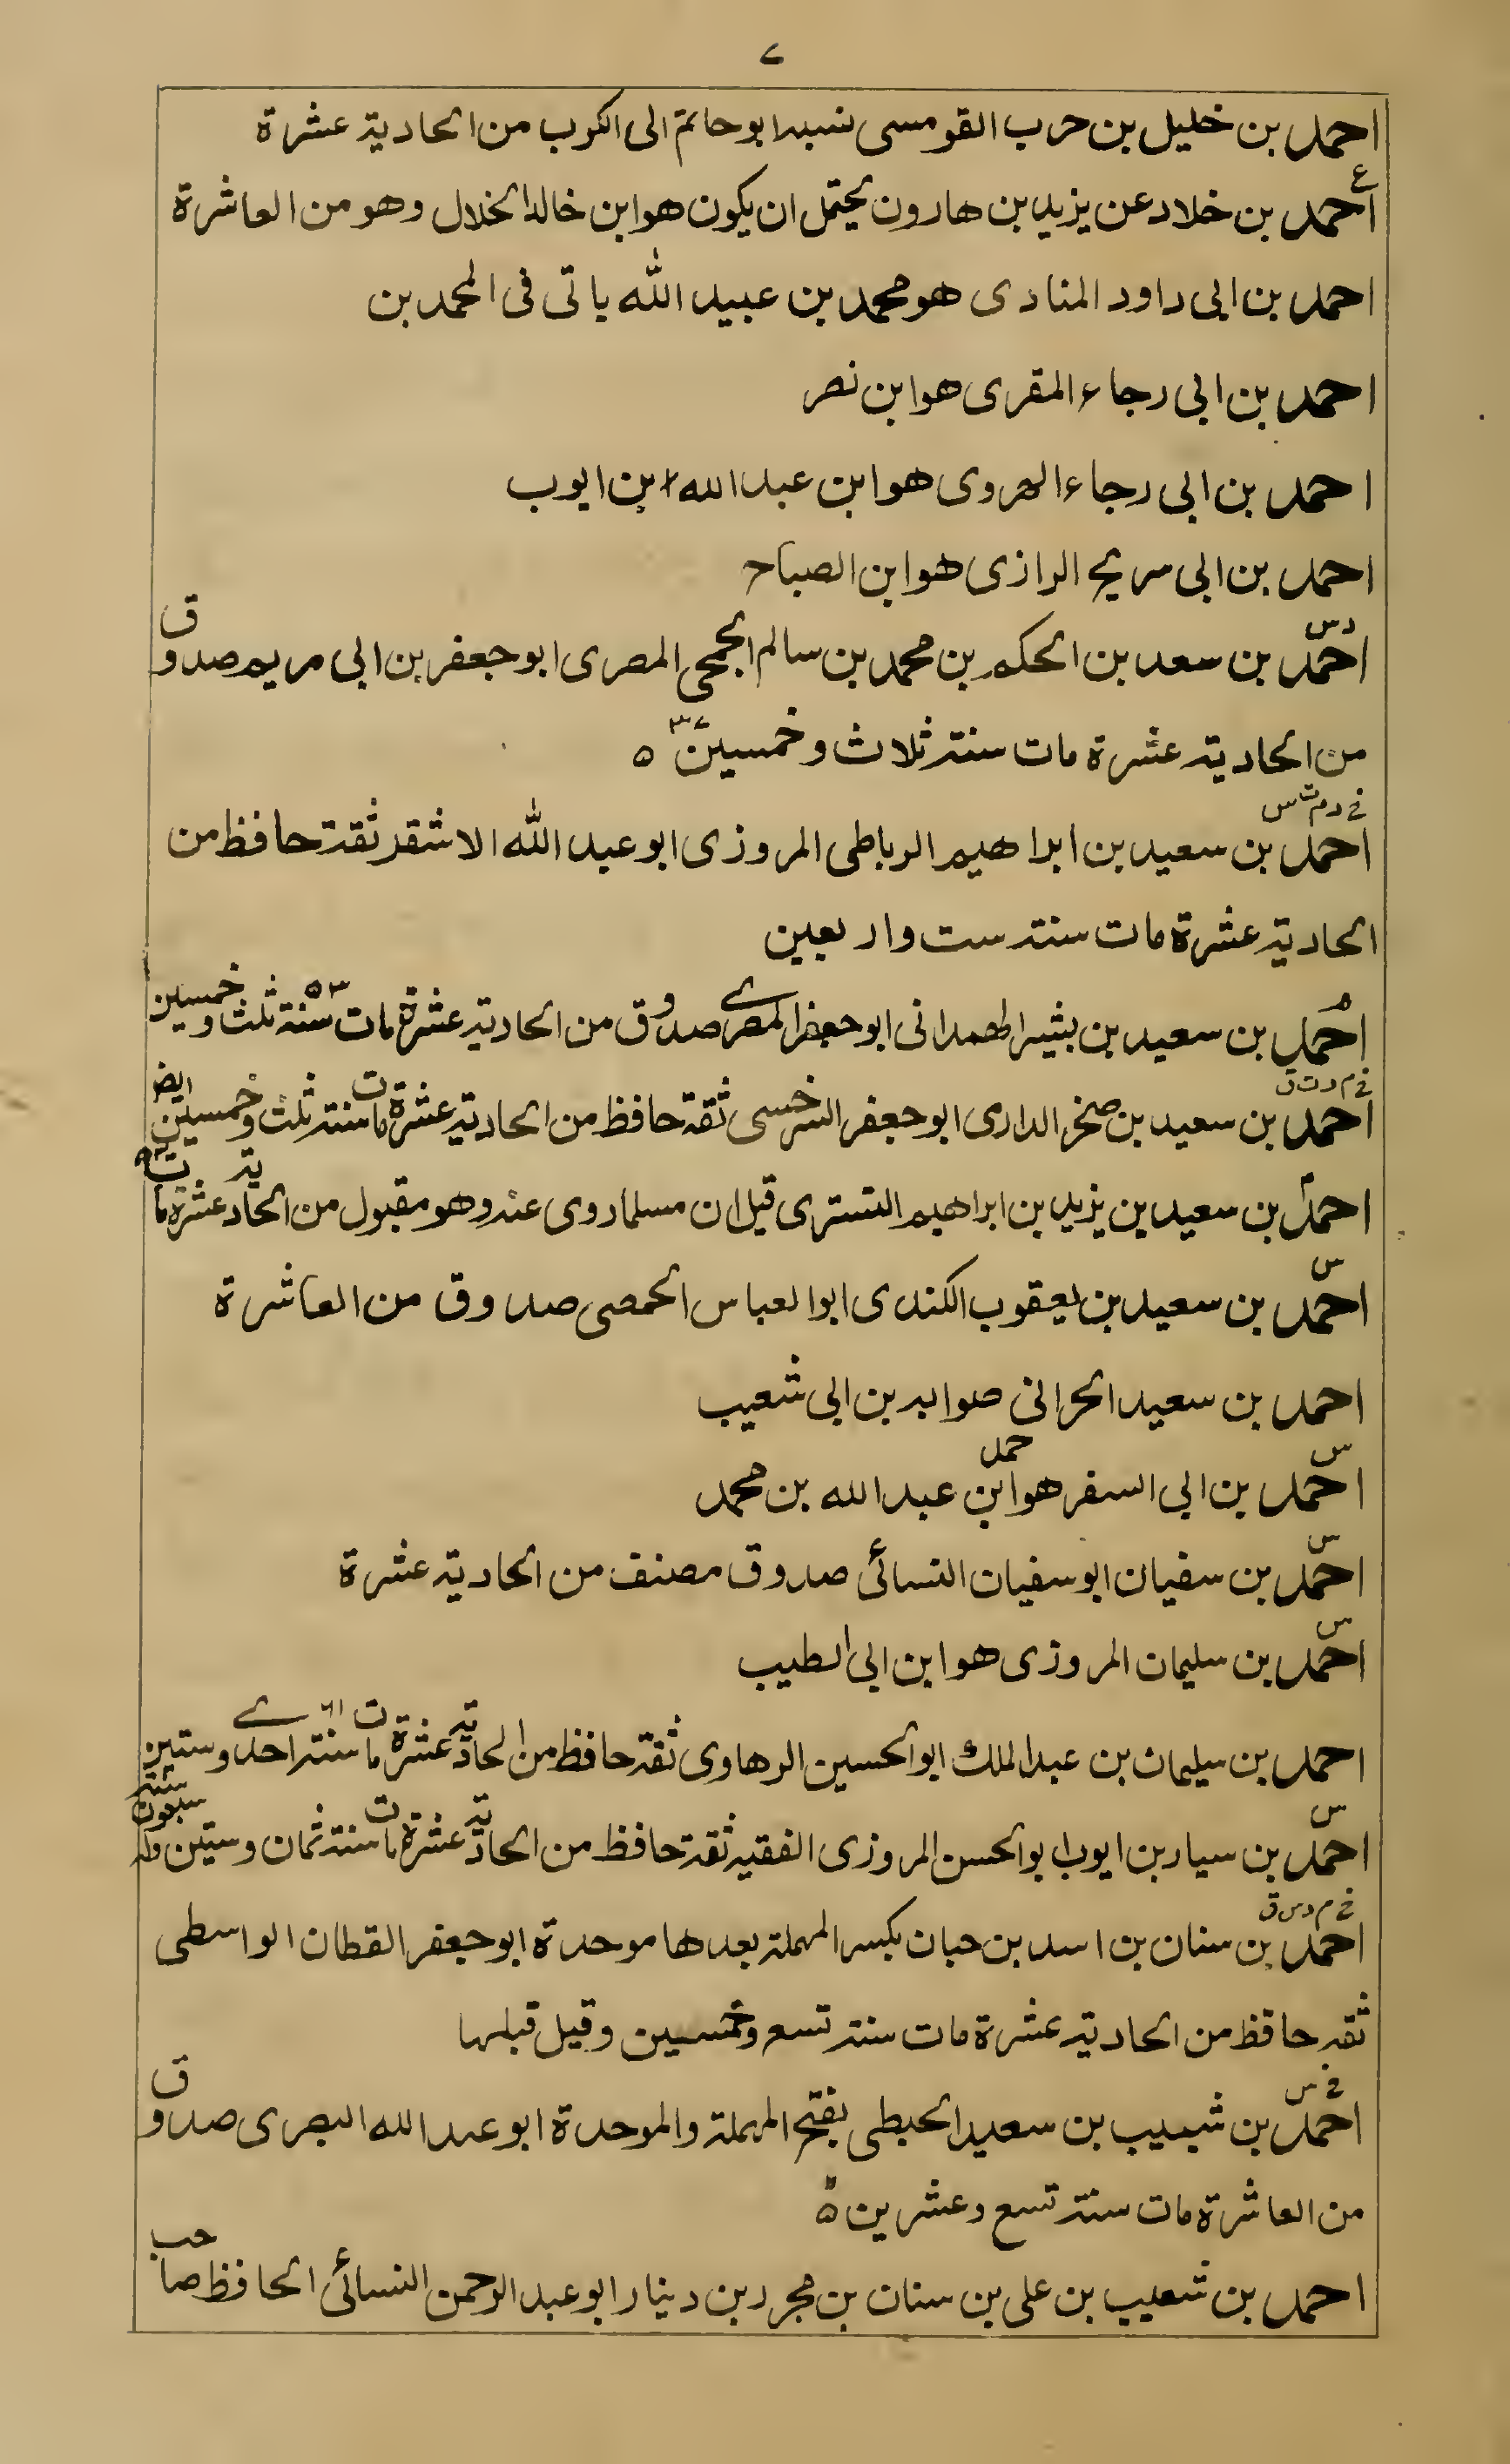 احمد بن خليل بن حرب القومسى نسبه ابو حاتم الى الكرب من الحادية عشرة
ع
احمد بن خلاد عن يزيد بن هارون يحتمل ان يكون هو ابن خالد الخلال وهو من العاشرة
احمد بن ابى داود المنادى هو محمد بن عبيد الله ياتى فى المحمد بن
احمد بن ابى رجاء المقرى هو ابن نصر
احمد بن ابى رجاء الهروى هو ابن عبد الله ابن ايوب
احمد بن ابى سريج الرازى هو ابن الصباح
دس
احمد بن سعد بن الحكم بن محمد بن سالم الجمحى المصرى ابو جعفر بن ابى مريم صدوق
من الحادية عشرة مات سنة ثلاث وخمسين
خ د م ت س
احمد بن سعيد بن ابراهيم الرباطى المروزى ابو عبد الله الاشقر ثقة حافظ من
الحادية عشرة مات سنة ست واربعين
احمد بن سعيد بن بشير الهمدانى ابو جعفر المصرے صدوق من الحادية عشرة مات سنة ثلث وخمسين ٥٣
خ م د ت ق
احمد بن سعيد بن صخر الدارى ابو جعفر السرخسى ثقة حافظ من الحادية عشرة مات سنة ثلث وخمسين ايض
احمد بن سعيد بن يزيد بن ابراهيم التسترى قيل ان مسلما روى عنه وهو مقبول من الحادية عشرة مات
س
احمد بن سعيد بن يعقوب الكندى ابو العباس الحمصى صدوق من العاشرة
احمد بن سعيد الحرانى صوابه بن ابى شعيب
س
احمد بن ابى السفر هو ابن عبد الله بن محمد
س
احمد بن سفيان ابو سفيان النسائى صدوق مصنف من الحادية عشرة
س
احمد بن سليمان المروزى هو ابن ابى الطيب
احمد بن سليمان بن عبد الملك ابو الحسين الرهاوى ثقة حافظ من الحادية عشرة مات سنة احدے وستين
س
احمد بن سيار بن ايوب ابو الحسن المروزى الفقيه ثقة حافظ من الحادية عشرة مات سنة ثمان وستين وله سبعون سنة
خ م د س ق
احمد بن سنان بن اسد بن حبان بكسر المهملة بعدها موحدة ابو جعفر القطان الواسطى
ثقة حافظ من الحادية عشرة مات سنة تسع وخمسين وقيل قبلها
خ س
احمد بن شبيب بن سعيد الحبطى بفتح المهملة والموحدة ابو عبد الله البصرى صدوق
من العاشرة مات سنة تسع وعشرين
احمد بن شعيب بن على بن سنان بن مجر دبن دينار ابو عبد الرحمن النسائى الحافظ صاحب